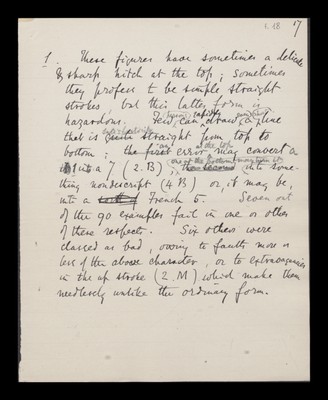 l. 18 17
1. These figures have sometimes a delicate
& sharp hitch at the top; sometimes
they profess to be simple straight
strokes, but this latter form is
hazardous. Few can rapidly draw a line
that is straight from top to
bottom; the first error at the top may convert a
1 into a 7 (2.B); into some-
thing nondescript (4 B) or, it may be,
into a French 5. Seven out
of the 90 examples fail in one or other
of these respects. Six others were
classed as bad, owing to faults more or
less of the above character, or to extravagancies
in the up stroke (2.M) which make them
needlessly unlike the ordinary form.